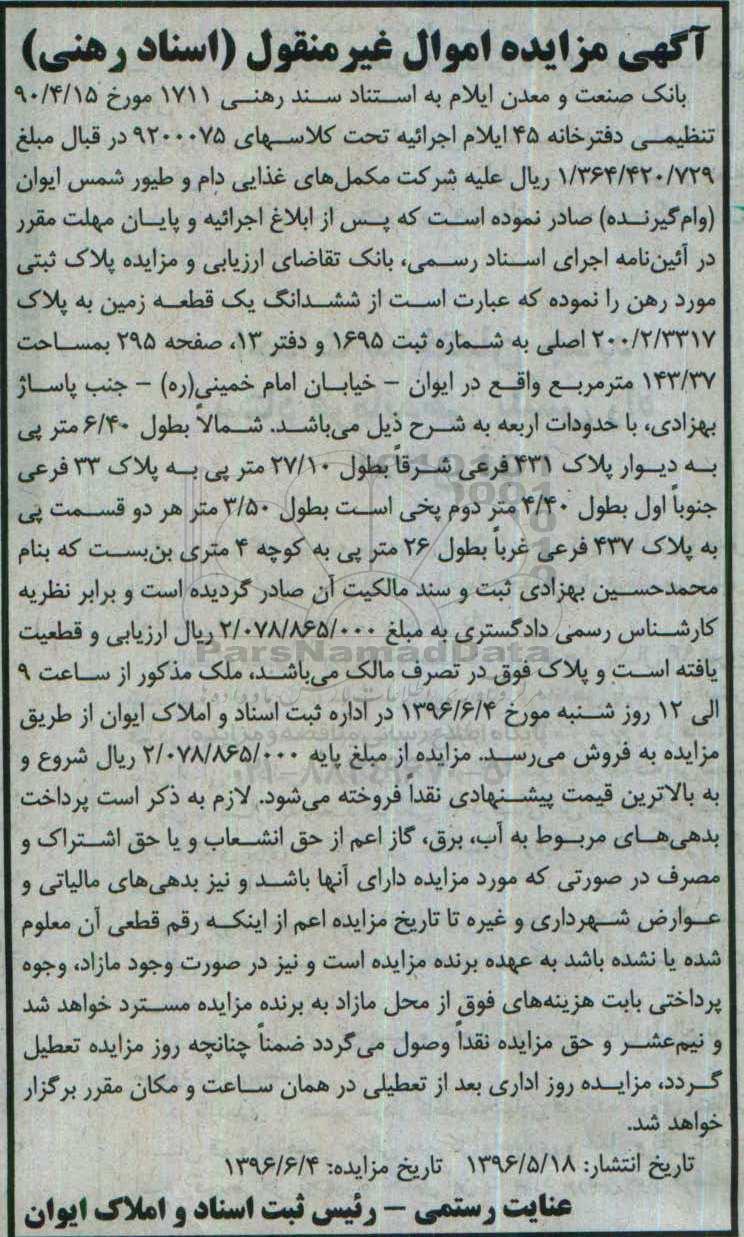 آگهی مزایده اموال غیرمنقول (اسناد رهنی)
بانک صنعت و معدن ایلام به استناد سند رهنی ۱۷۱۱ مورخ ۹۰/۴/۱۵
تنظیمی دفترخانه ۴۵ ایلام اجرائیه تحت کلاسهای ۹۲۰۰۰۷۵ در قبال مبلغ
۱/۳۶۴/۴۲۰/۷۲۹ ریال علیه شرکت مکمل‌های غذایی دام و طیور شمس ایوان
(وام‌گیرنده) صادر نموده است که پس از ابلاغ اجرائیه و پایان مهلت مقرر
در آئین‌نامه اجرای اسناد رسمی، بانک تقاضای ارزیابی و مزایده پلاک ثبتی
مورد رهن را نموده که عبارت است از ششدانگ یک قطعه زمین به پلاک
۲۰۰/۲/۳۳۱۷ اصلی به شماره ثبت ۱۶۹۵ و دفتر ۱۳، صفحه ۲۹۵ بمساحت
۱۴۳/۳۷ مترمربع واقع در ایوان – خیابان امام خمینی(ره) – جنب پاساژ
بهزادی، با حدودات اربعه به شرح ذیل می‌باشد. شمالاً بطول ۶/۴۰ متر پی
به دیوار پلاک ۴۳۱ فرعی شرقاً بطول ۲۷/۱۰ متر پی به پلاک ۳۳ فرعی
جنوباً اول بطول ۴/۴۰ متر دوم پخی است بطول ۳/۵۰ متر هر دو قسمت پی
به پلاک ۴۳۷ فرعی غرباً بطول ۲۶ متر پی به کوچه ۴ متری بن‌بست که بنام
محمدحسین بهزادی ثبت و سند مالکیت آن صادر گردیده است و برابر نظریه
کارشناس رسمی دادگستری به مبلغ ۲/۰۷۸/۸۶۵/۰۰۰ ریال ارزیابی و قطعیت
یافته است و پلاک فوق در تصرف مالک می‌باشد، ملک مذکور از ساعت ۹
الی ۱۲ روز شنبه مورخ ۱۳۹۶/۶/۴ در اداره ثبت اسناد و املاک ایوان از طریق
مزایده به فروش می‌رسد. مزایده از مبلغ پایه ۲/۰۷۸/۸۶۵/۰۰۰ ریال شروع و
به بالاترین قیمت پیشنهادی نقداً فروخته می‌شود. لازم به ذکر است پرداخت
بدهی‌های مربوط به آب، برق، گاز اعم از حق انشعاب و یا حق اشتراک و
مصرف در صورتی که مورد مزایده دارای آنها باشد و نیز بدهی‌های مالیاتی و
عوارض شهرداری و غیره تا تاریخ مزایده اعم از اینکه رقم قطعی آن معلوم
شده یا نشده باشد به عهده برنده مزایده است و نیز در صورت وجود مازاد، وجوه
پرداختی بابت هزینه‌های فوق از محل مازاد به برنده مزایده مسترد خواهد شد
و نیم‌عشر و حق مزایده نقداً وصول می‌گردد ضمناً چنانچه روز مزایده تعطیل
گردد، مزایده روز اداری بعد از تعطیلی در همان ساعت و مکان مقرر برگزار
خواهد شد.
تاریخ انتشار: ۱۳۹۶/۵/۱۸ تاریخ مزایده: ۱۳۹۶/۶/۴
عنایت رستمی – رئیس ثبت اسناد و املاک ایوان
ParsNamadData